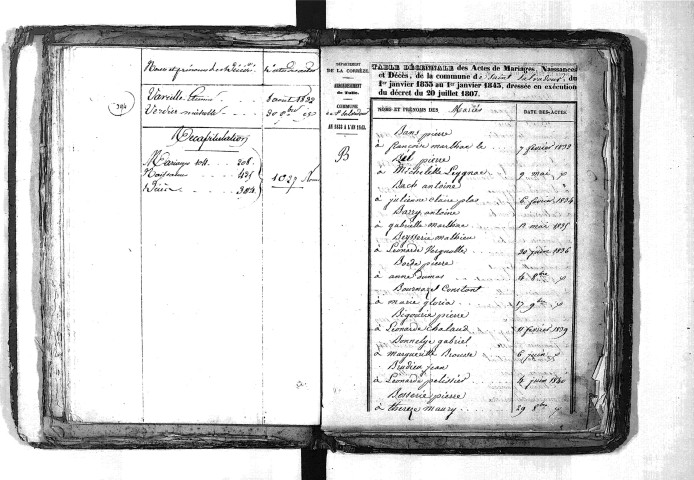 Noms et prénoms des Décédés
Vareille Etienne 1 août 1832
Verdier
Recapitulation
Mariages 104 208
Naissances 435
Décès 384
1027 Noms
DÉPARTEMENT
DE LA CORRÈZE.
ARRONDISSEMENT
de Tulle.
COMMUNE
de St Salvadour
AN 1833 A L'AN 1843.
B
TABLE DÉCENNALE des Actes de Mariages, Naissances
et Décès, de la commune de Saint Salvadour, du
1er janvier 1833 au 1er janvier 1843, dressée en exécution
du décret du 20 juillet 1807.
NOMS ET PRÉNOMS DES Mariés
DATE DES ACTES
Bans pierre
à françoise marthae le 7 février 1833
Bel pierre
à Michelette Leygnac 9 mai
Bach antoine
à julienne claire plas 6 février 1834
Barry antoine
à gabrielle marthae 11 mai 1835
Beysserie mathieu
à Léonarde Vergnolles 20 juin 1836
Borde pierre
à anne dumas 4 8bre
Bournazel Constant
à marie gloria 17 9bre
Bigourie pierre
à Léonarde chalaud 11 février 1839
Bonnelye gabriel
à marguerite Brousse 6 juin
Brudieu jean
à Léonarde pelissier 4 juin 1840
Bosserie pierre
à therèze maury 29 8bre